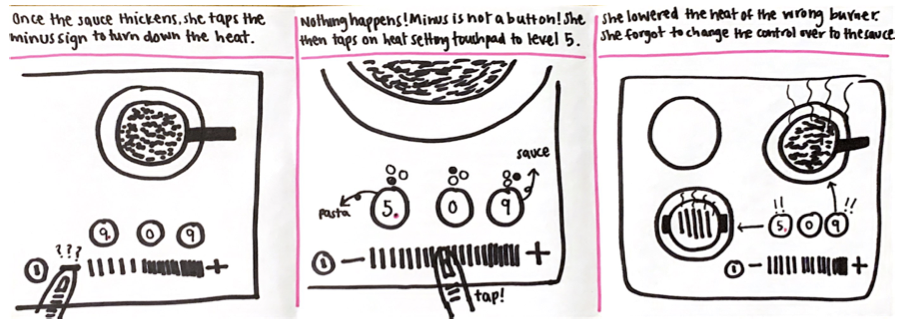 Once the sauce thickens, she taps the
minus sign to turn down the heat.
???
9. 0 9
+
Nothing happens! Minus is not a button! She
then taps on heat setting touchpad to level 5.
sauce
pasta
5. 0 9
- +
tap!
She lowered the heat of the wrong burner.
She forgot to change the control over to the sauce
!! !!
5. 0 9
- +